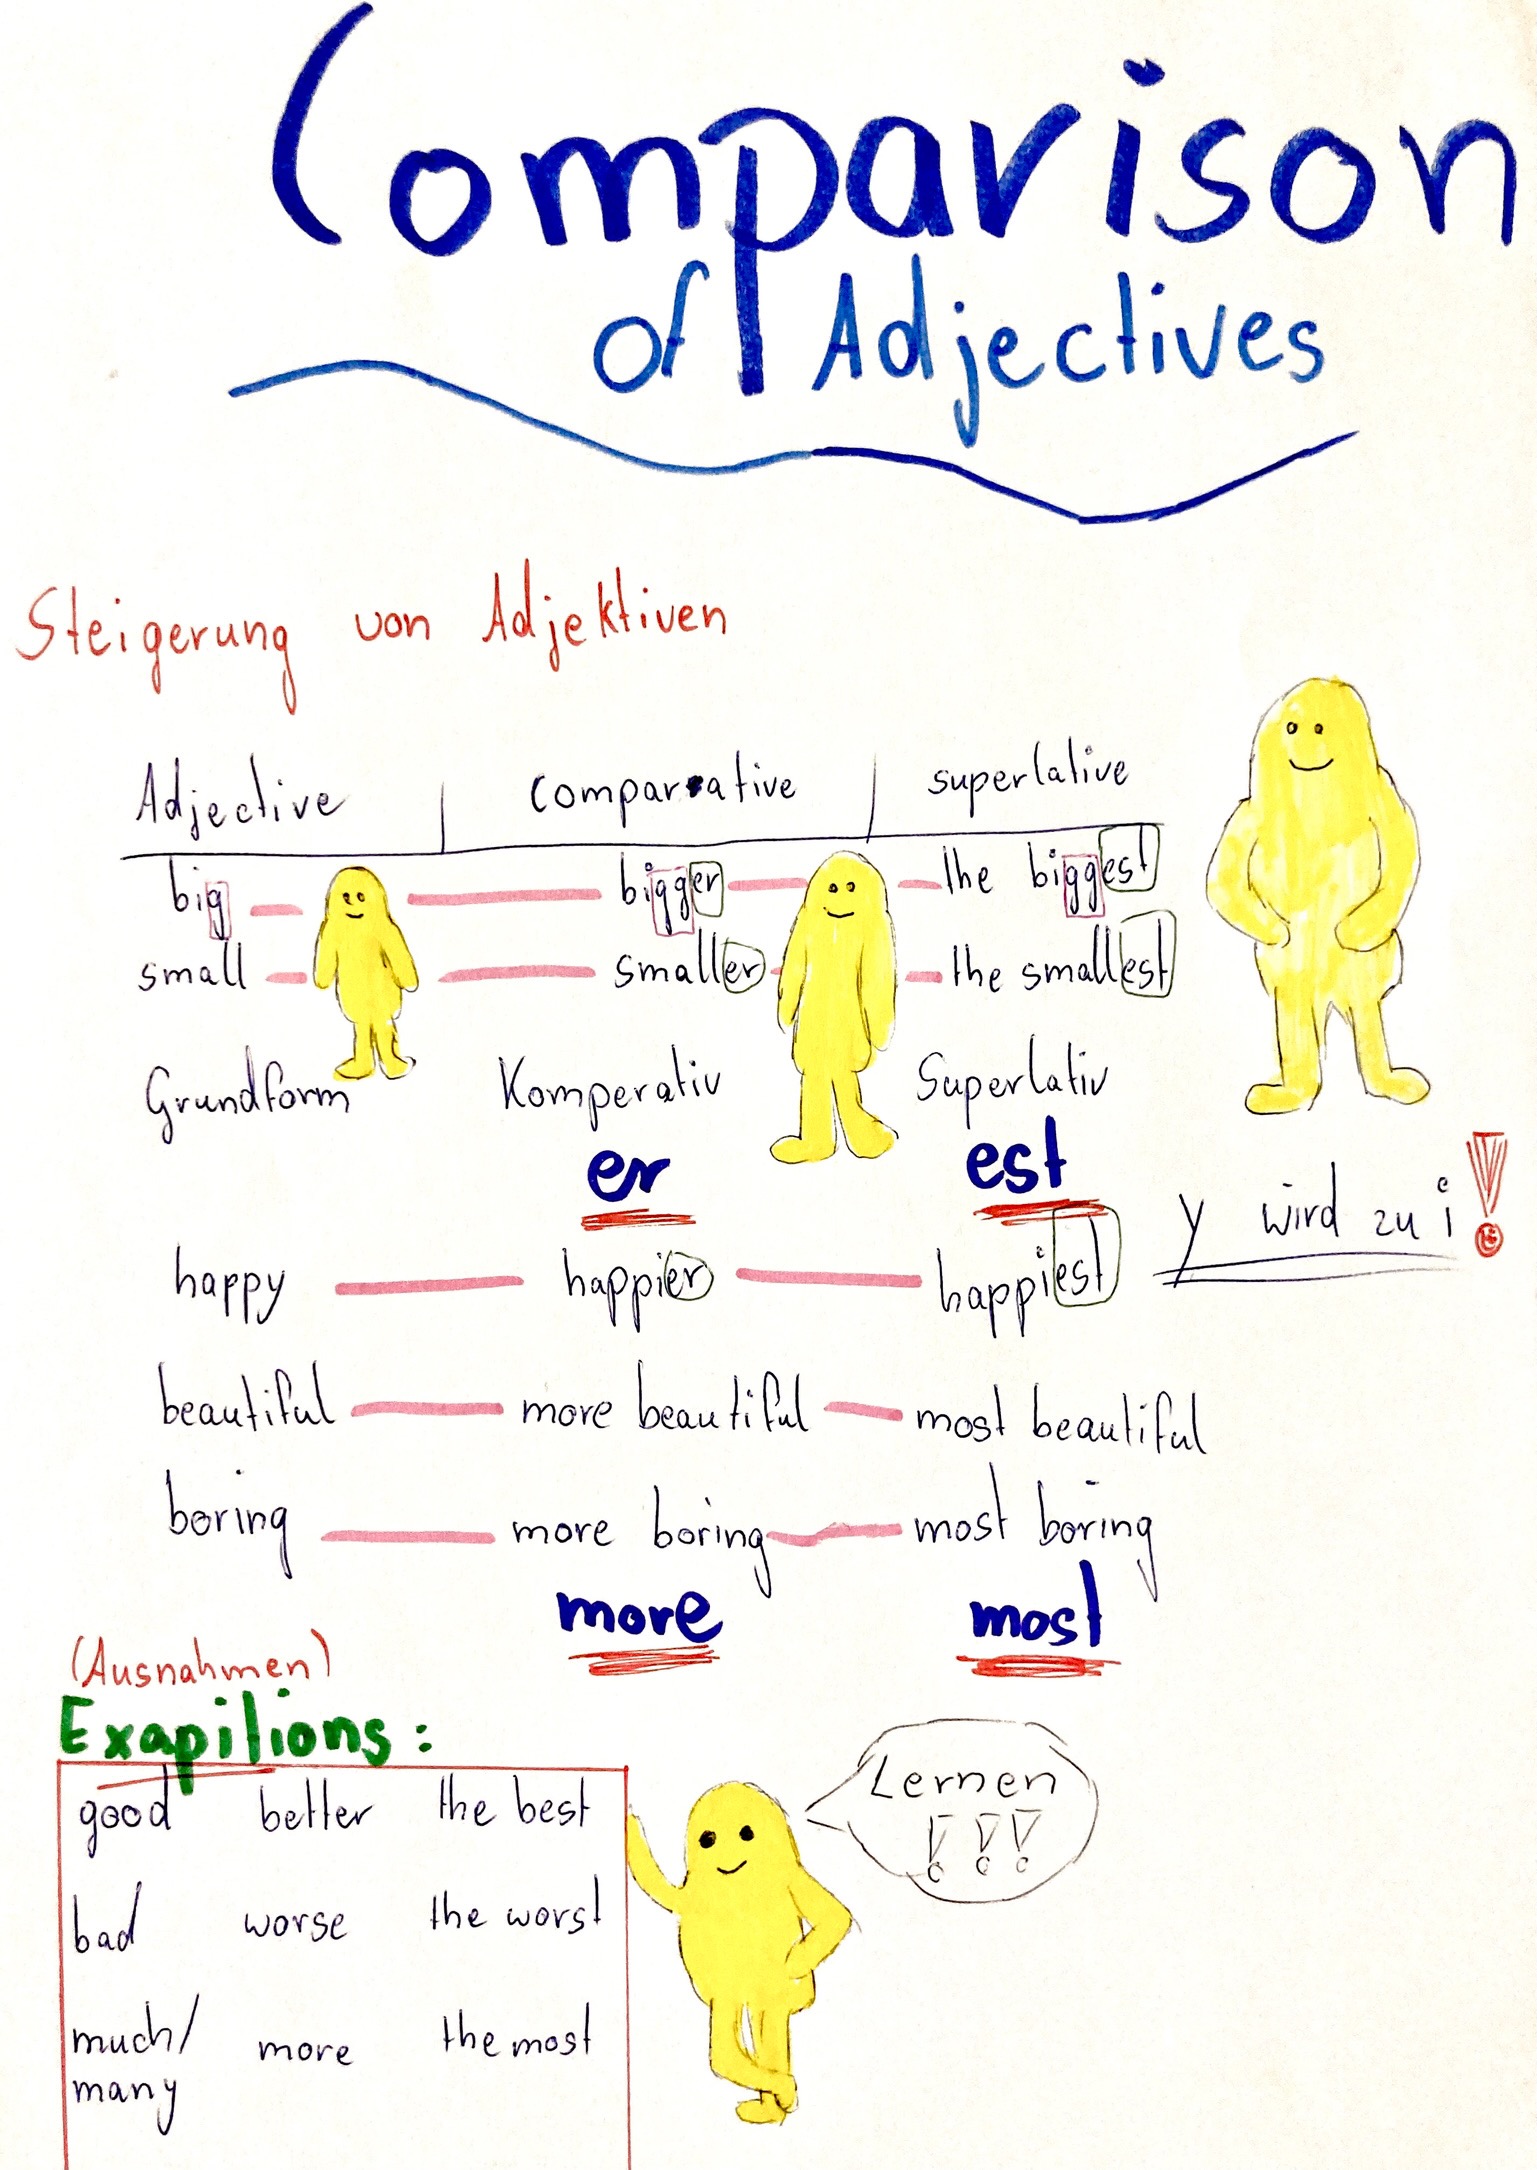 Comparison
of Adjectives
Steigerung von Adjektiven
Adjective | comparative | superlative
big bigger the biggest
small smaller the smallest
Grundform Komperativ Superlativ
er est
y wird zu i!
happy happier happiest
beautiful more beautiful most beautiful
boring more boring most boring
more most
(Ausnahmen)
Exapitions:
good better the best
bad worse the worst
much/ more the most
many
Lernen
!!!